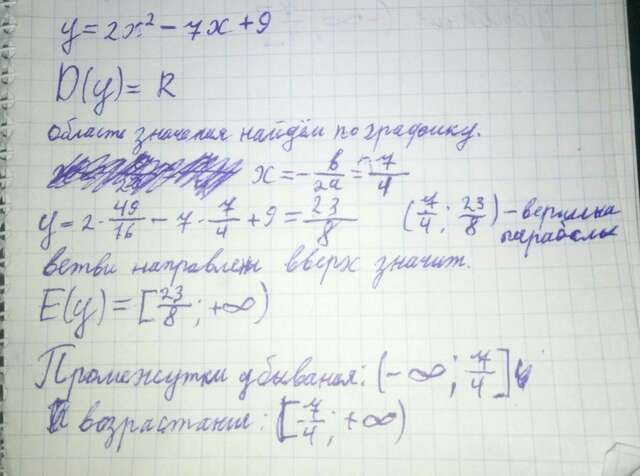 y = 2x² − 7x + 9
D(y) = R
область значения найдём по графику.
x = − b/2a = 7/4
y = 2 · 49/16 − 7 · 7/4 + 9 = 23/8 (7/4; 23/8) – вершина параболы
ветви направлен вверх значит.
E(y) = [23/8; +∞)
Промежутки убывания: (−∞; 7/4] и
возрастание: [7/4; +∞)